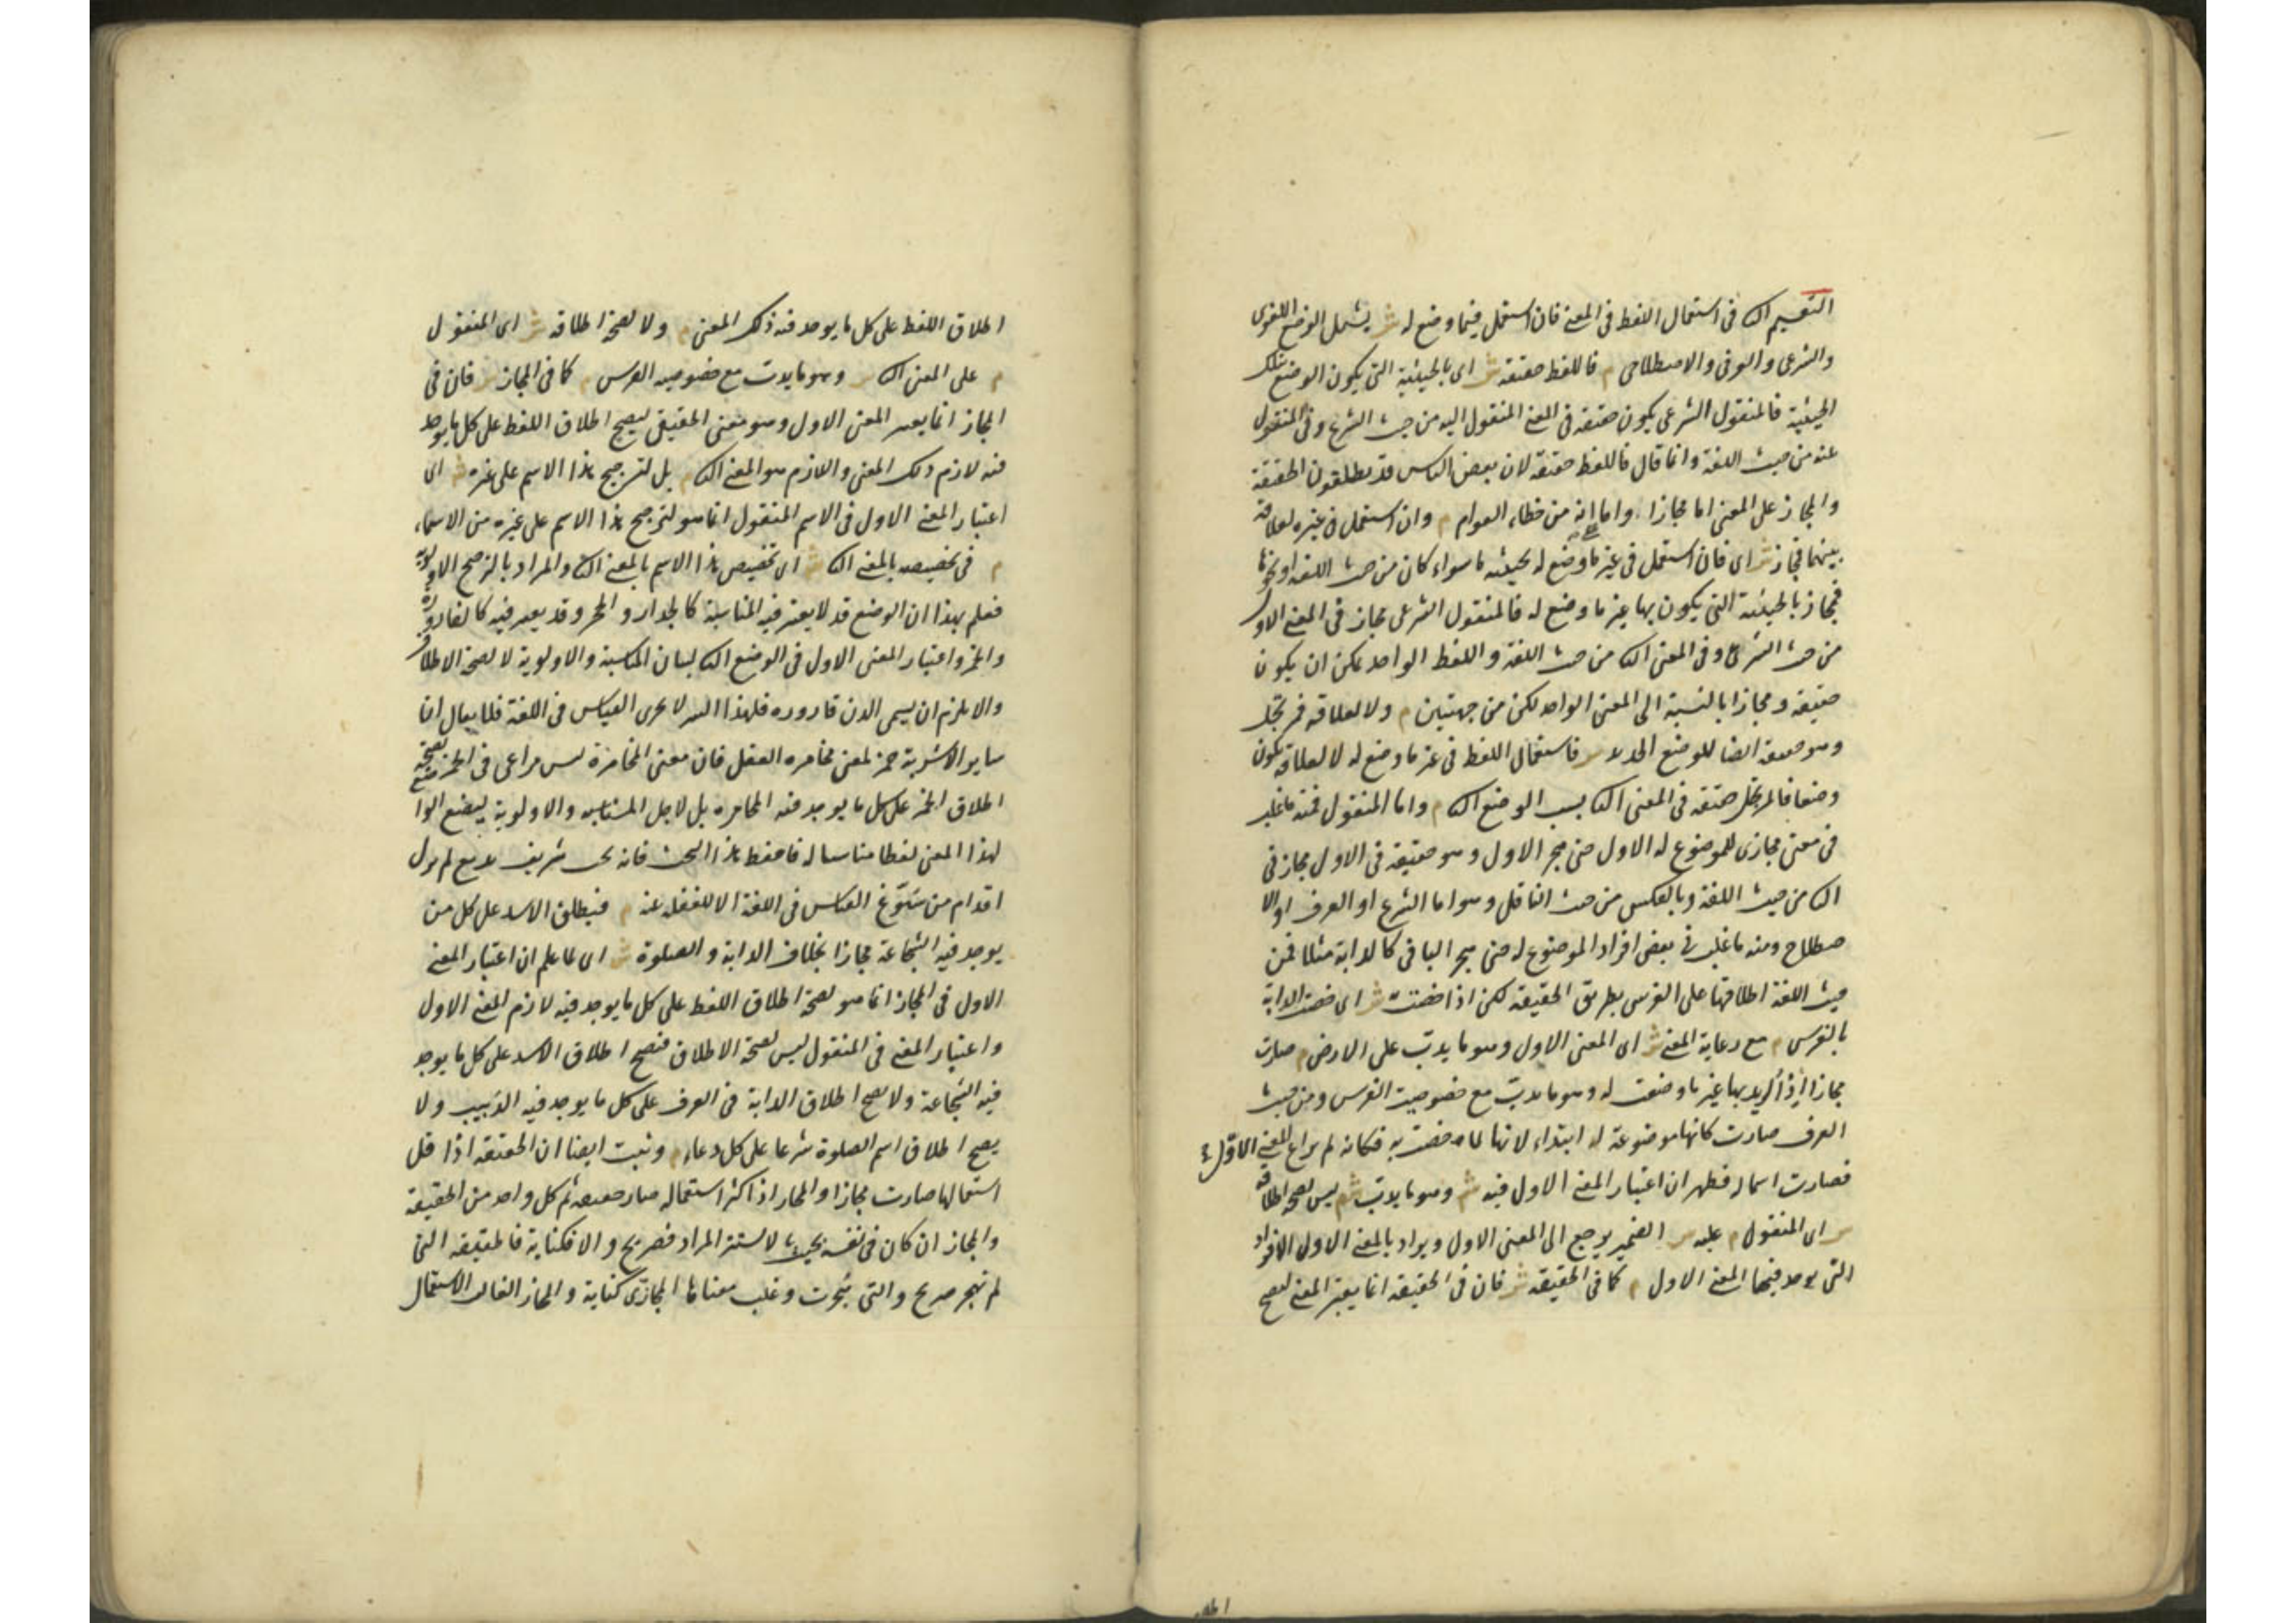 التقسيم الثا في استعمال اللفظ في المعنى فان استعمل فيما وضع له ش يشمل الوضع اللغوى
والشرعى والعرفى والاصطلاحى م فاللفظ حقيقة ش اى بالحيثية التى يكون الوضع بتلك
الحيثية فالمنقول الشرعى يكون حقيقة فى المعنى المنقول اليه من حيث الشرع وفى المنقول
عنه من حيث اللغة وانما قال فاللفظ حقيقة لان بعض الناس قد يطلقون الحقيقة
والمجاز على المعنى اما مجازا واما انه من خطاء العوام م وان استعمل فى غيره لعلاقة
بينهما فمجاز ش اى فان استعمل فى غير ما وضع له بحيثية ما سواء كان من حيث اللغة او نحوها
فمجاز بالحيثية التى يكون بها غير ما وضع له فالمنقول الشرعى مجاز فى المعنى الاول
من حيث الشرع وفى المعنى الثا من حيث اللغة واللفظ الواحد يمكن ان يكون
حقيقة ومجازا بالنسبة الى المعنى الواحد لكن من جهتين م ولا لعلاقة فمرتجل
وهو حقيقة ايضا للوضع الجديد ش فاستعمال اللفظ فى غير ما وضع له لا لعلاقة يكون
وضعا فالمرتجل حقيقة فى المعنى الثا بسبب الوضع الثا م واما المنقول فمنه ما غلب
فى معنى مجازى للموضوع له الاول حتى هجر الاول وهو حقيقة فى الاول مجاز فى
الثا من حيث اللغة وبالعكس من حيث الناقل وهو اما الشرع او العرف او الا
صطلاح ومنه ما غلب فى بعض افراد الموضوع له حتى هجر الباقى كالدابة مثلا فمن
حيث اللغة اطلاقها على الفرس بطريق الحقيقة لكن اذا خصت ش اى خصت الدابة
بالفرس م مع رعاية المعنى ش اى المعنى الاول وهو ما يدب على الارض م صارت
مجازا اذ اريد بها غير ما وضعت له وهو ما يدب مع خصوصية الفرس ومن حيث
العرف صارت كانها موضوعة له ابتداء لانها لما خصت به فكانه لم يراع المعنى الاول
فصارت اسما له فظهر ان اعتبار المعنى الاول فيه ش وهو ما يدب ش م ليس لصحة اطلاقه
ش اى المنقول م عليه ش الضمير يرجع الى المعنى الاول ويراد بالمعنى الاول الافراد
التى يوجد فيها المعنى الاول م كما فى الحقيقة ش فان فى الحقيقة انما يعتبر المعنى ليصح
اطلا
اطلاق اللفظ على كل ما يوجد فيه ذلك المعنى م ولا لصحة اطلاقه ش اى المنقول
م على المعنى الثا ش وهو ما يدب مع خصوصية الفرس م كما فى المجاز ش فان فى
المجاز انما يعتبر المعنى الاول وهو معنى الحقيقى ليصح اطلاق اللفظ على كل ما يوجد
فيه لازم ذلك المعنى واللازم هو المعنى الثا م بل لترجيح هذا الاسم على غيره ش اى
اعتبار المعنى الاول فى الاسم المنقول انما هو لترجيح هذا الاسم على غيره من الاسماء
م فى تخصيصه بالمعنى الثا ش اى تخصيص هذا الاسم بالمعنى الثا والمراد بالترجيح الاولوية
فعلم بهذا ان الوضع قد لا يعتبر فيه المناسبة كالجدار والحجر وقد يعتبر فيه كالقارورة
والخمر واعتبار المعنى الاول فى الوضع الثا لبيان المناسبة والاولوية لا لصحة الاطلاق
والا يلزم ان يسمى الدن قارورة فلهذا السر لا يجرى القياس فى اللغة فلا يقال انما
ساير الاشربة خمر لمعنى مخامرة العقل فان معنى المخامرة ليس مراعى فى الخمر لصحة
اطلاق الخمر على كل ما يوجد فيه المخامرة بل لاجل المناسبة والاولوية ليضع الواضع
لهذا المعنى لفظا مناسبا له فاحفظ هذا البحث فانه بحث شريف بديع لم يزل
اقدام من سوّغ القياس فى اللغة الا للغفلة عنه م فيطلق الاسد على كل من
يوجد فيه الشجاعة مجازا بخلاف الدابة والصلوة ش اى لما علم ان اعتبار المعنى
الاول فى المجاز انما هو لصحة اطلاق اللفظ على كل ما يوجد فيه لازم المعنى الاول
واعتبار المعنى فى المنقول ليس لصحة الاطلاق فيصح اطلاق الاسد على كل ما يوجد
فيه الشجاعة ولا يصح اطلاق الدابة فى العرف على كل ما يوجد فيه الدبيب ولا
يصح اطلاق اسم الصلوة شرعا على كل دعاء م وثبت ايضا ان الحقيقة اذا قل
استعمالها صارت مجازا والمجاز اذا كثر استعماله صار حقيقة ثم كل واحد من الحقيقة
والمجاز ان كان فى نفسه بحيث لا يستتر المراد فصريح والا فكناية فالحقيقة التى
لم تهجر صريح والتى هجرت وغلب معناها المجازى كناية والمجاز الغالب الاستعمال